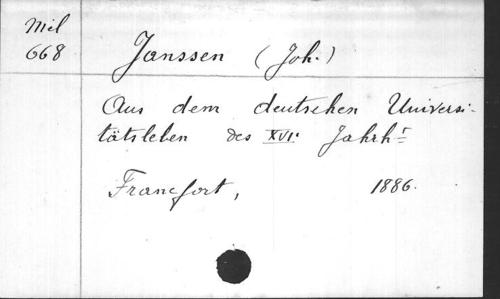 Mil
668
Janssen (Joh.)
Aus dem deutschen Universi-
tätsleben des XVI. Jahrhr
Francfort, 1886.